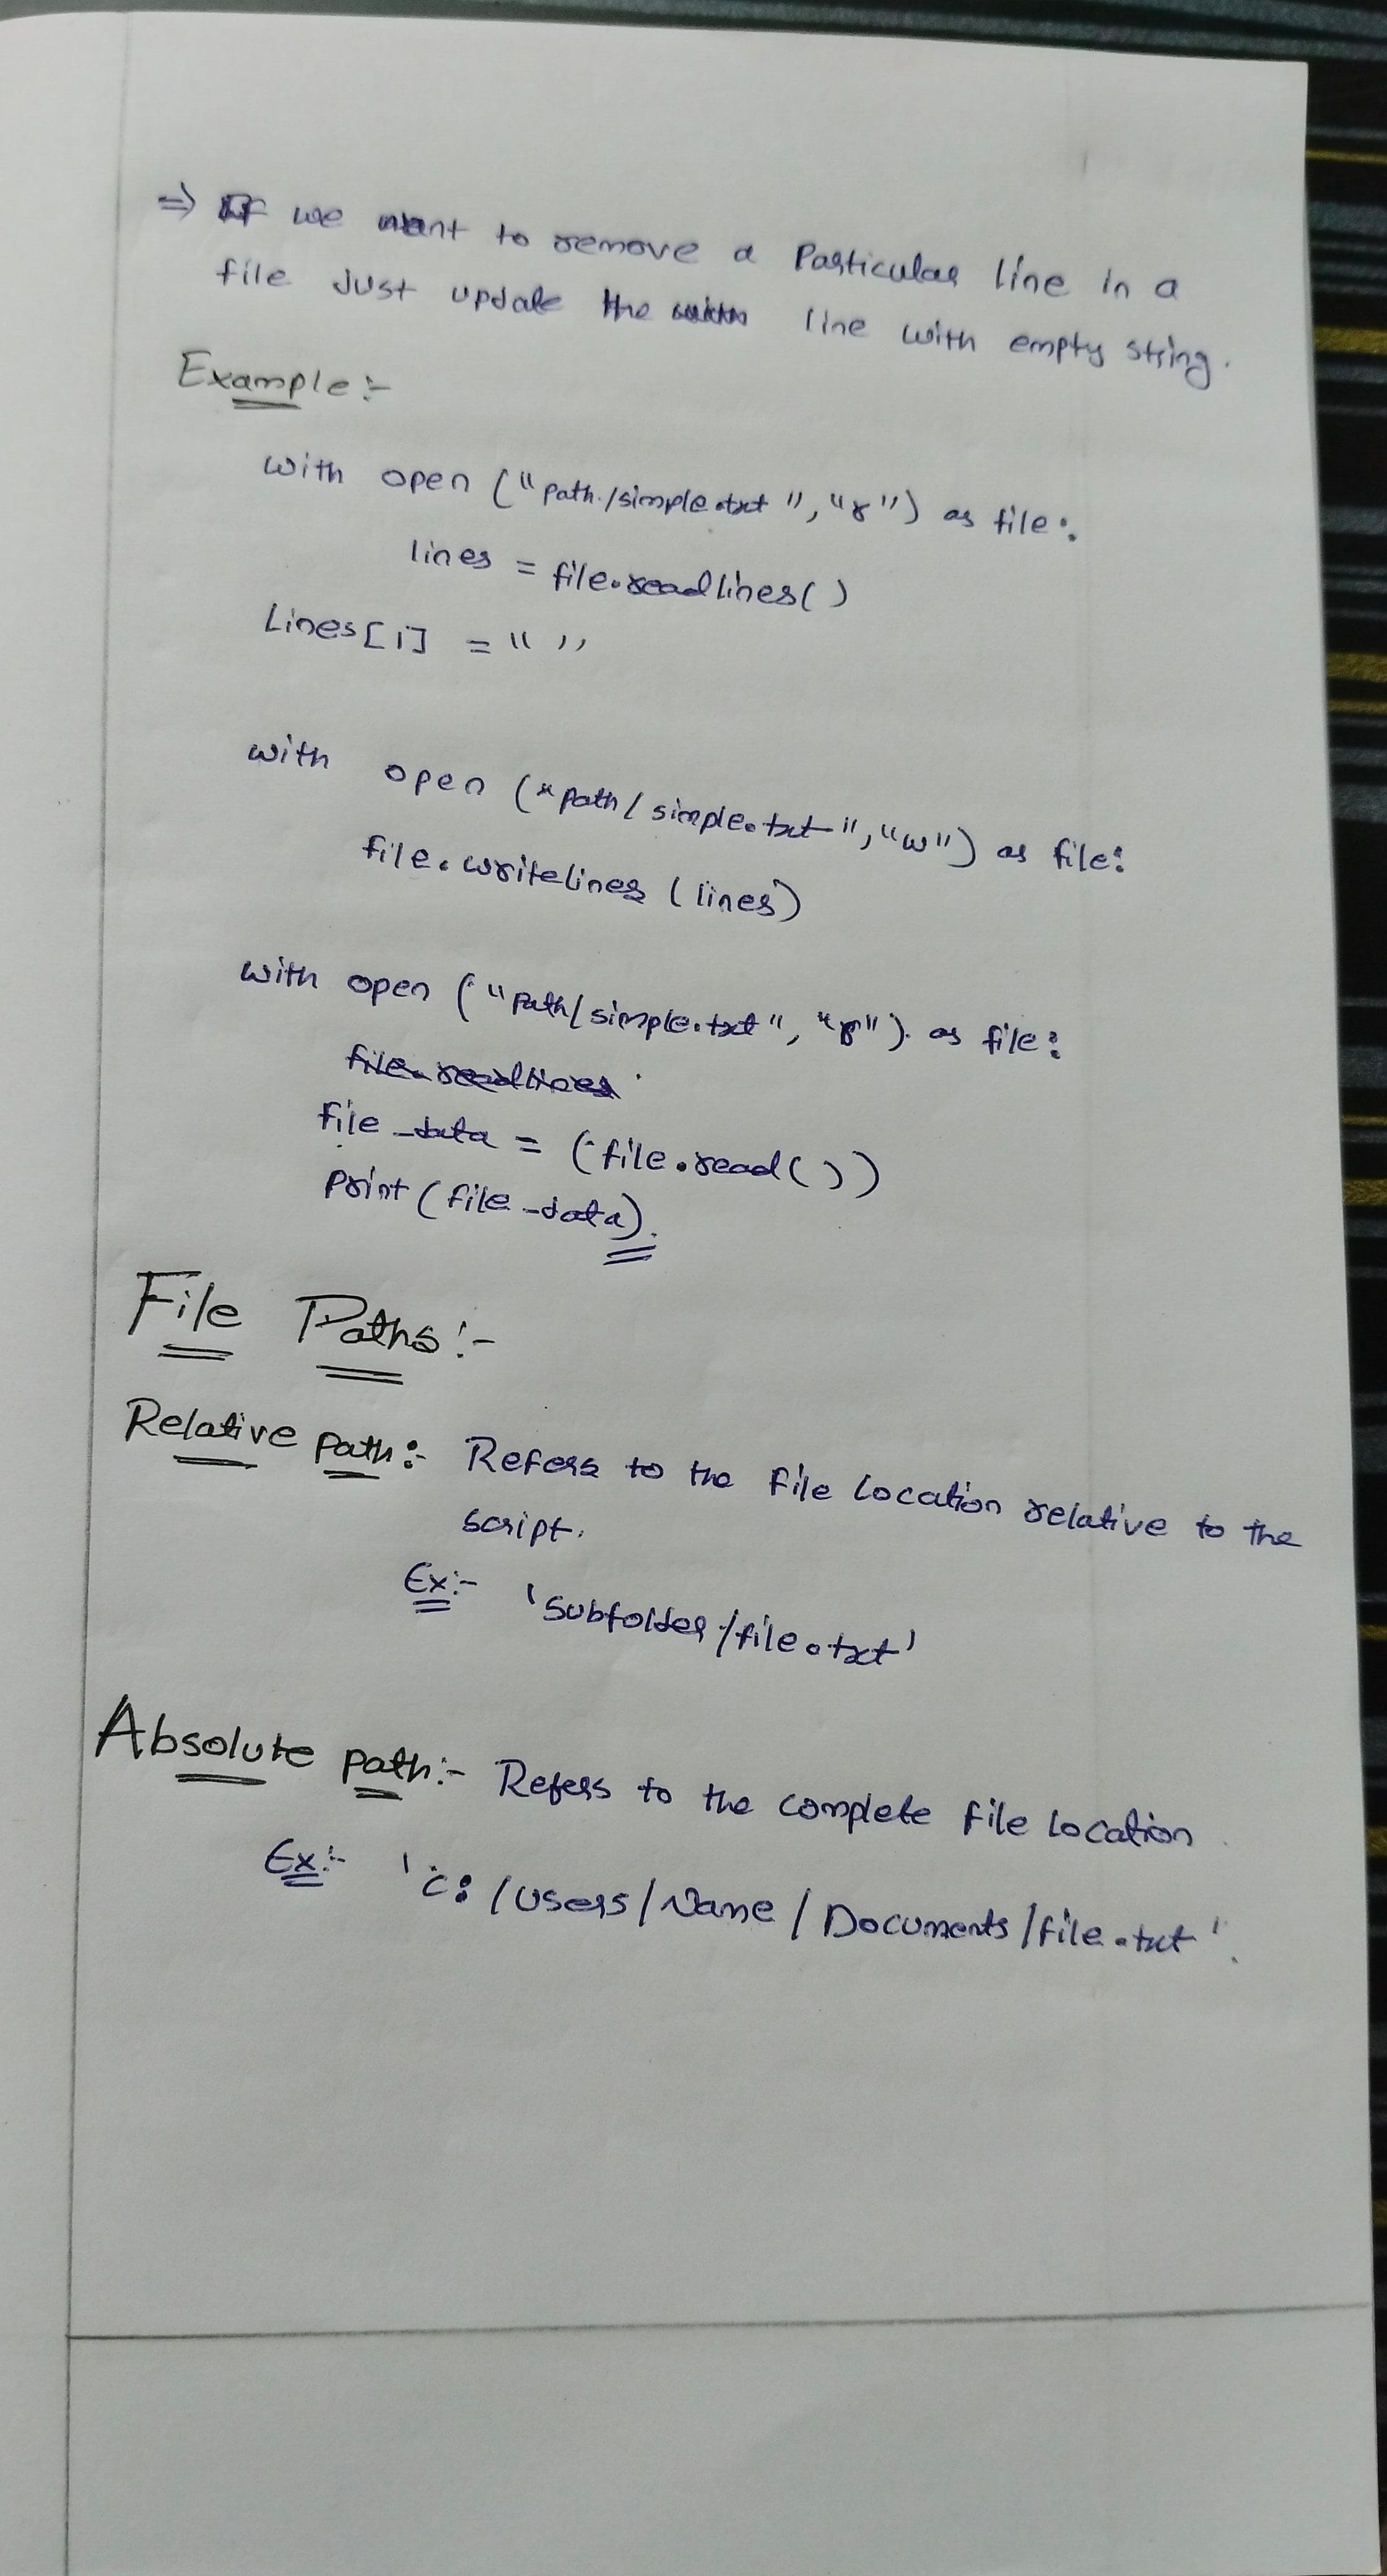 ⇒ If we want to remove a Particular line in a
file Just update the line with empty string.
Example:-
with open ("path./simple.txt", "r") as file:
lines = file.readlines()
Lines[1] = " "
with open ("path/simple.txt", "w") as file:
file.writelines (lines)
with open ("Path/simple.txt", "r"). as file:
file.readlines
file_data = (file.read())
Print (file_data).
File Paths:-
Relative path:- Refers to the file Location relative to the
script.
Ex:- 'Subfolder/file.txt'
Absolute path:- Refers to the complete file location
Ex:- 'C:/Users/Name/Documents/file.txt'.